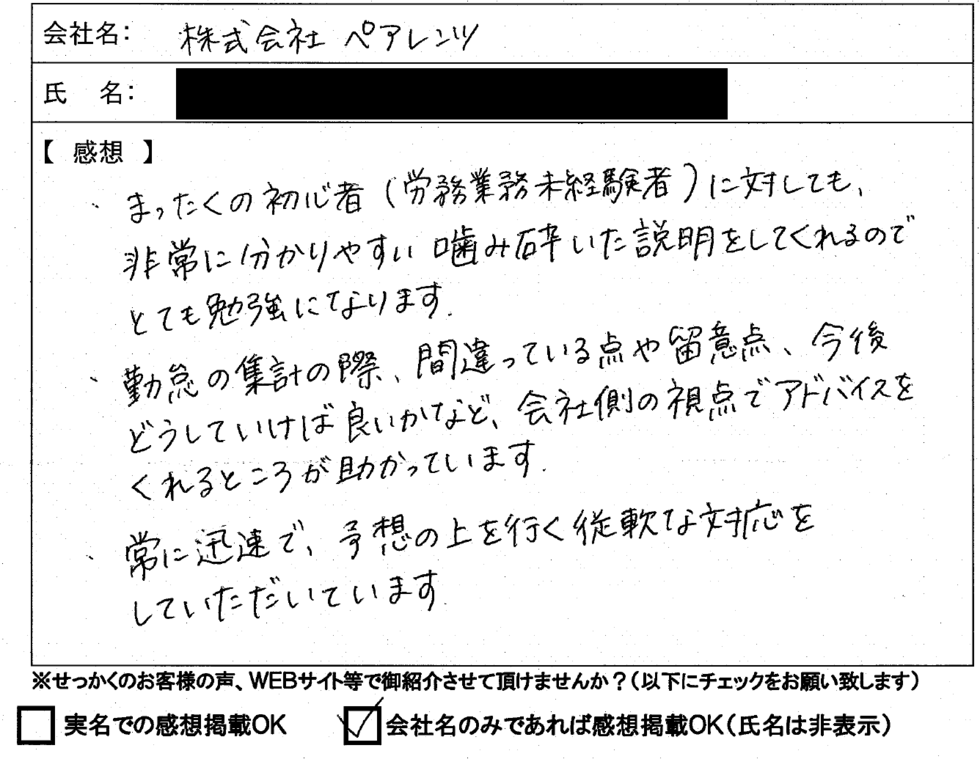 会社名： 株式会社 ペアレンツ
氏　名：
【 感想 】
・まったくの初心者（労務業務未経験者）に対しても、
非常に分かりやすい噛み砕いた説明をしてくれるので
とても勉強になります。
・勤怠の集計の際、間違っている点や留意点、今後
どうしていけば良いかなど、会社側の視点でアドバイスを
くれるところが助かっています。
・常に迅速で、予想の上を行く従軟な対応を
していただいています
※せっかくのお客様の声、WEBサイト等で御紹介させて頂けませんか？（以下にチェックをお願い致します）
実名での感想掲載OK　会社名のみであれば感想掲載OK（氏名は非表示）